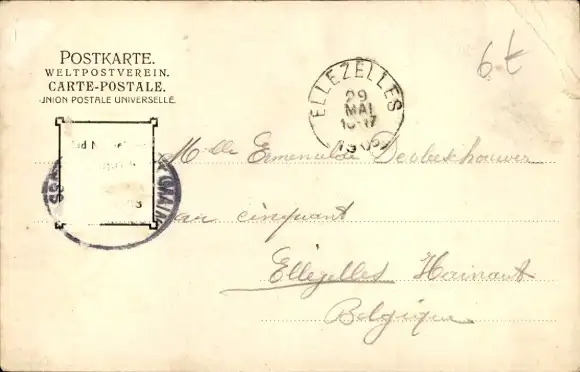 POSTKARTE.
WELTPOSTVEREIN.
CARTE-POSTALE.
UNION POSTALE UNIVERSELLE.
6t
ELLEZELLES
29
MAI
16-17
Mlle Ermenulde
au cinquant
Ellezelles Hainaut
Belgique